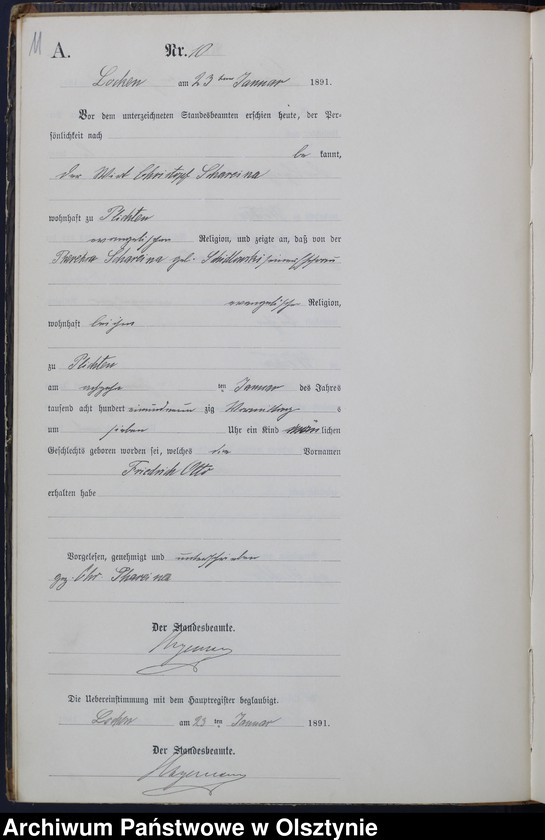 11
A. Nr. 10
Locken am 23 ten Januar 1891.
Vor dem unterzeichneten Standesbeamten erschien heute, der Per-
sönlichkeit nach
be kannt,
der Wirt Christoph Schareina
wohnhaft zu Plichten
evangelischer Religion, und zeigte an, daß von der
Schareina geb. seiner Ehefrau
evangelischer Religion,
wohnhaft bei ihm
zu Plichten
am ten Januar des Jahres
tausend acht hundert einundneun zig Vormittag s
um sieben Uhr ein Kind männlichen
Geschlechts geboren worden sei, welches die Vornamen
Friedrich Otto
erhalten habe
Vorgelesen, genehmigt und unterschrieben
gez. Chr. Schareina
Der Standesbeamte.
Die Uebereinstimmung mit dem Hauptregister beglaubigt.
Locken am 23 ten Januar 1891.
Der Standesbeamte.
Archiwum Państwowe w Olsztynie